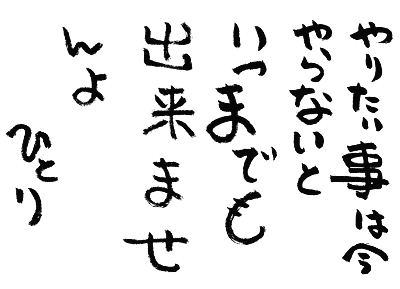 やりたい事は今
やらないと
いつまでも
出来ませ
んよ
ひとり